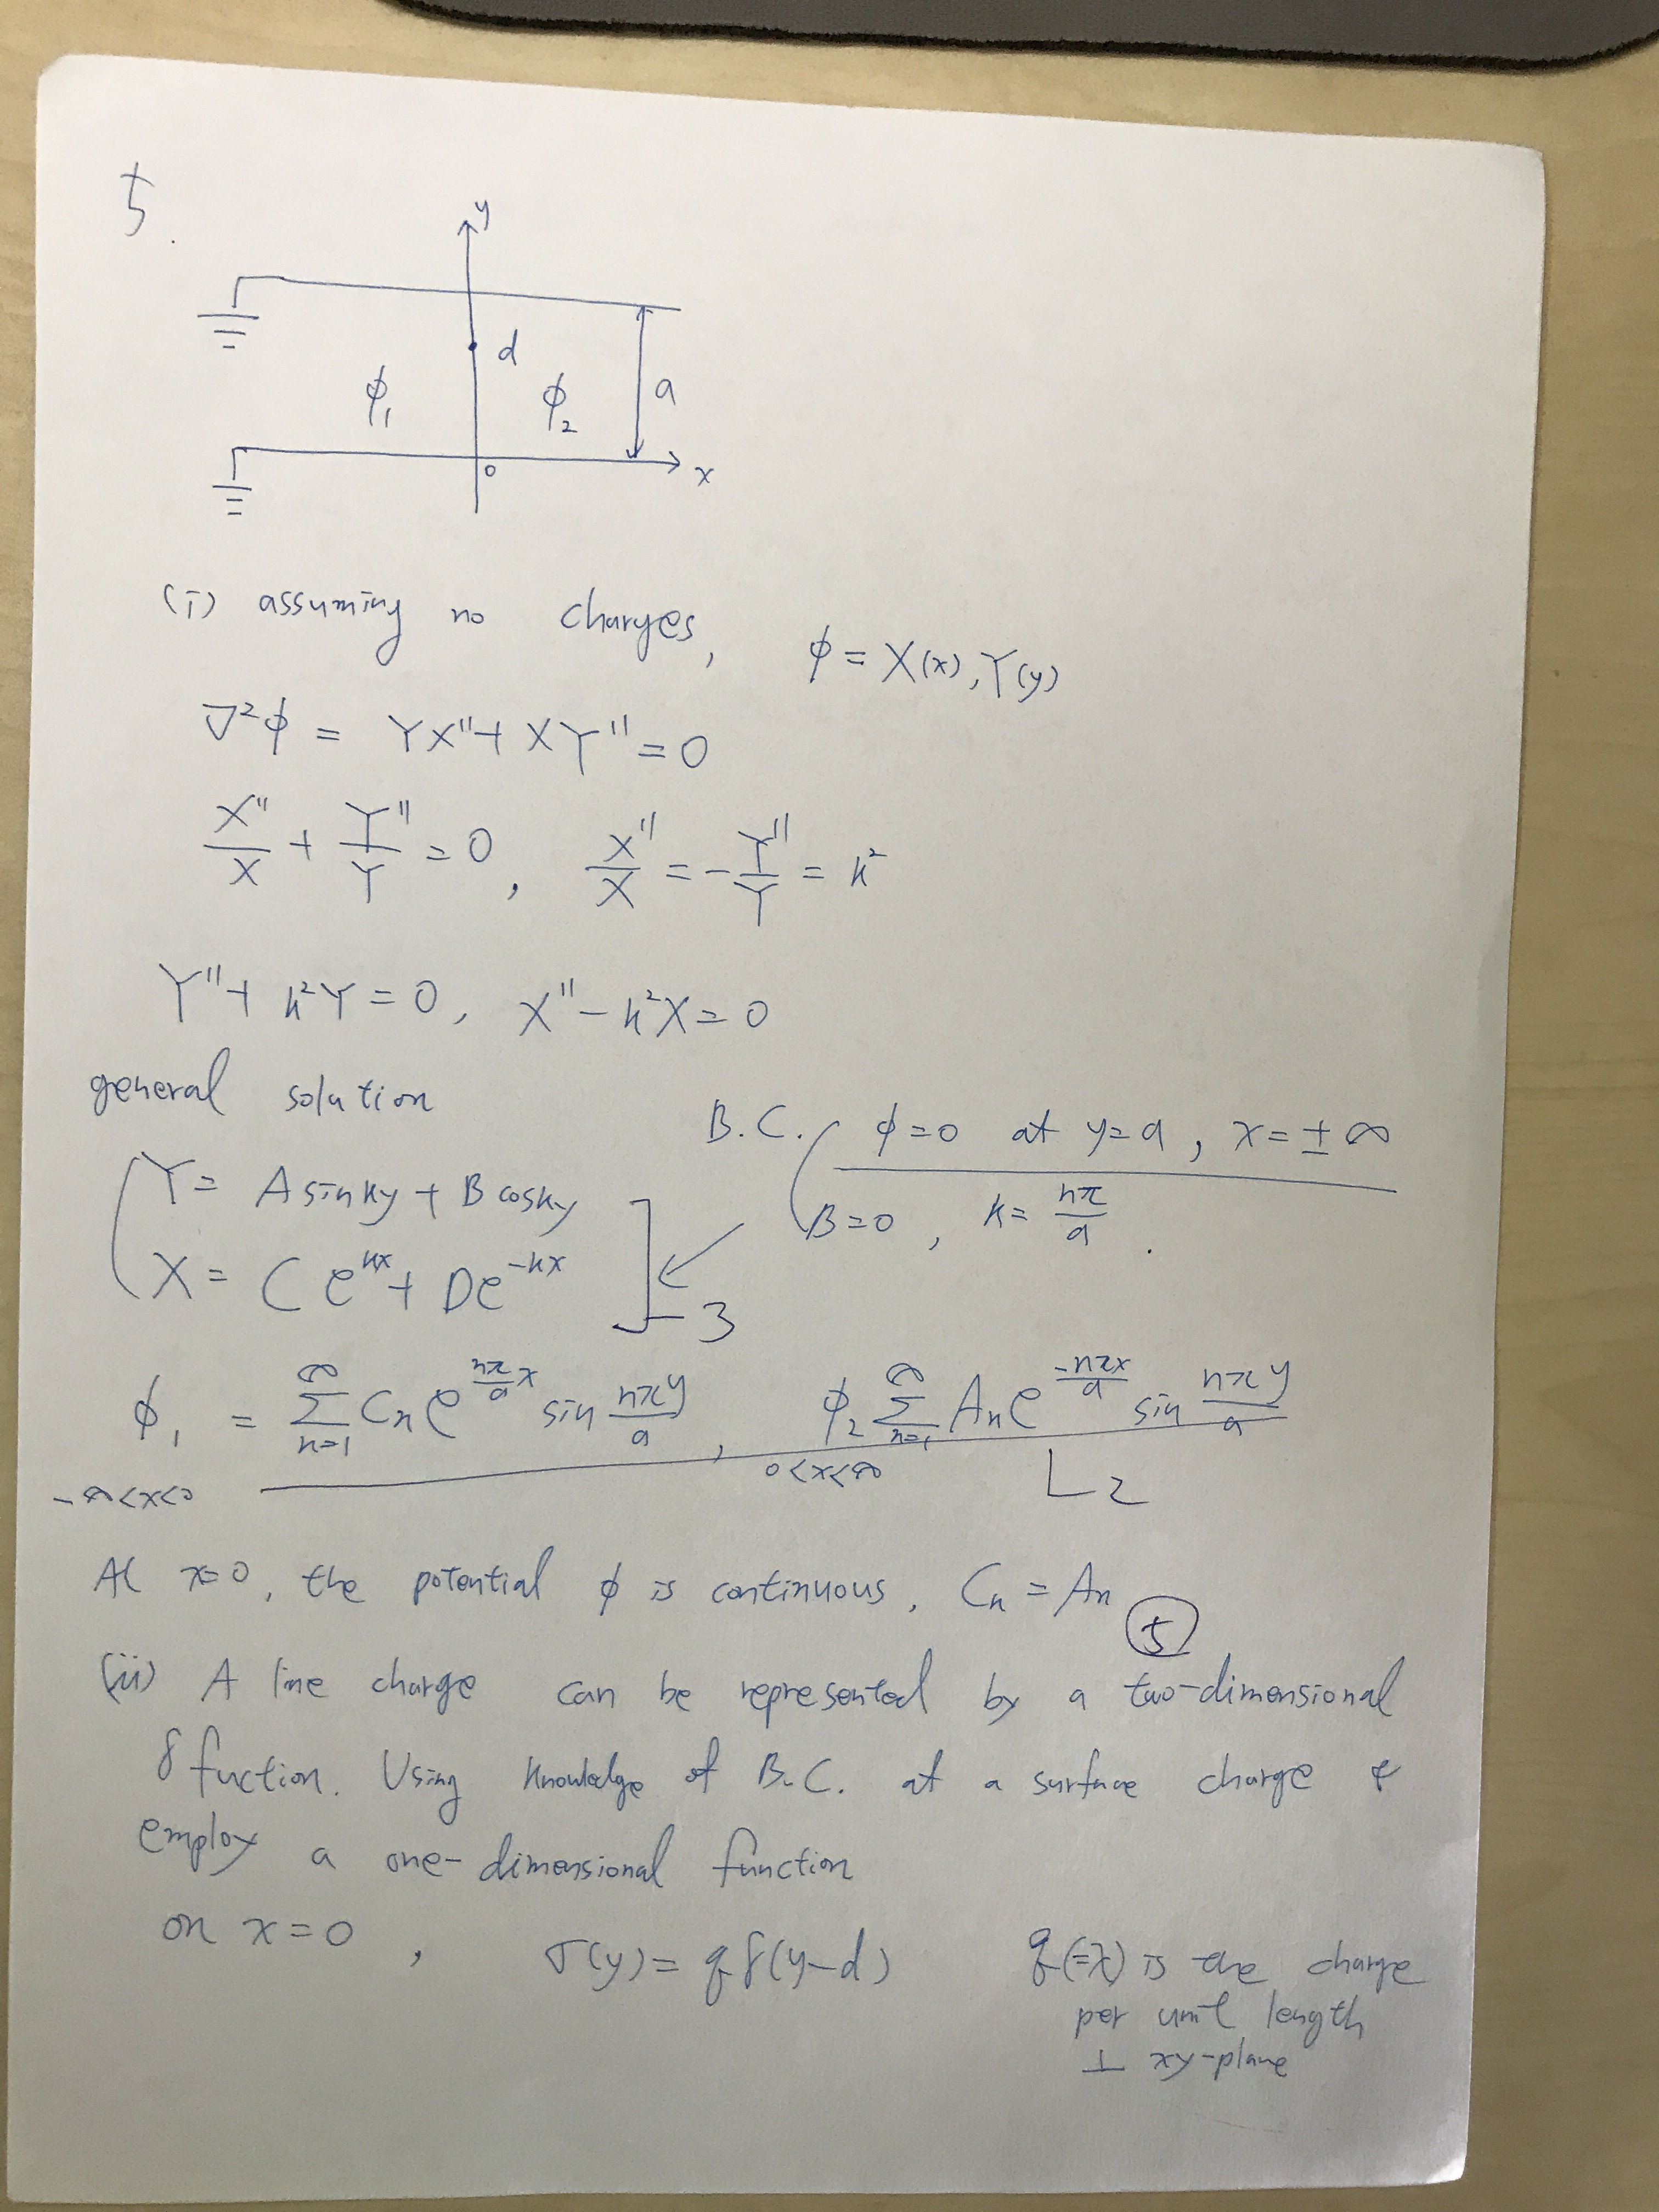 5.
y
d
ϕ₁ ϕ₂ a
0 x
(i) assuming no charges, ϕ = X(x), Y(y)
∇²ϕ = YX'' + XY'' = 0
X''/X + Y''/Y = 0, X''/X = -Y''/Y = k²
Y'' + k²Y = 0, X'' - k²X = 0
general solution
B.C. ϕ=0 at y=a, x=±∞
Y = A sin ky + B cos ky
B=0, k = nπ/a.
X = C e^{kx} + D e^{-kx}
3
ϕ₁ = ∑_{n=1}^{∞} Cₙ e^{nπ/a x} sin nπy/a, ϕ₂ ∑_{n=1}^{∞} Aₙ e^{-nπx/a} sin nπy/a
-∞<x<0 0<x<∞ 2
At x=0, the potential ϕ is continuous, Cₙ = Aₙ
5
(ii) A line charge can be represented by a two-dimensional
δ fuction. Using knowledge of B.C. at a surface charge &
employ a one-dimensional function
on x=0, σ(y) = q δ(y-d) q(=λ) is the charge
per unit length
⊥ xy-plane